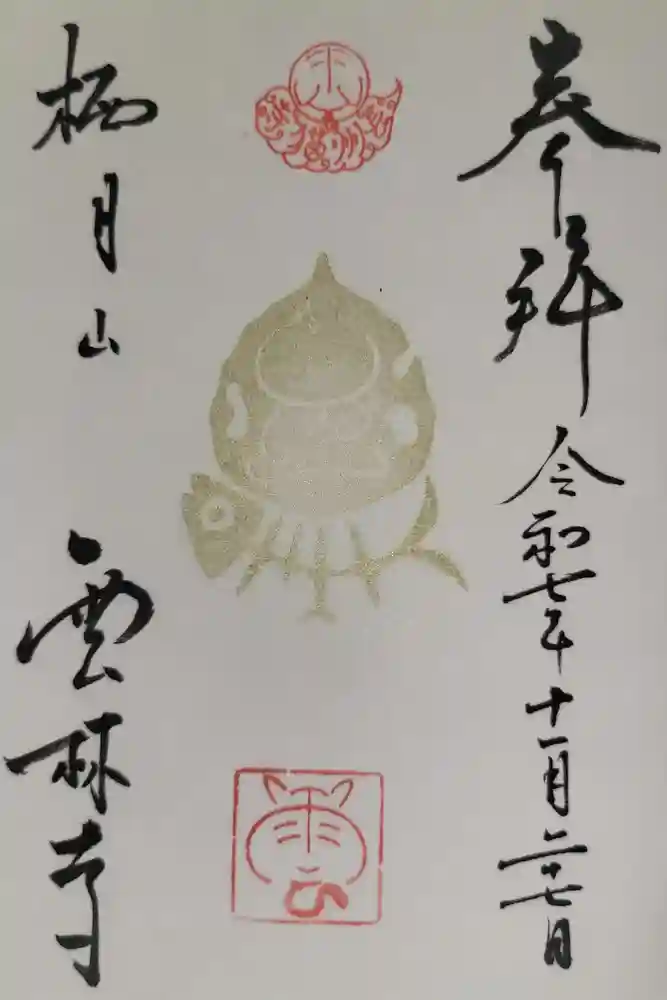 奉拝
令和七年十一月二十七日
栖月山
雲林寺